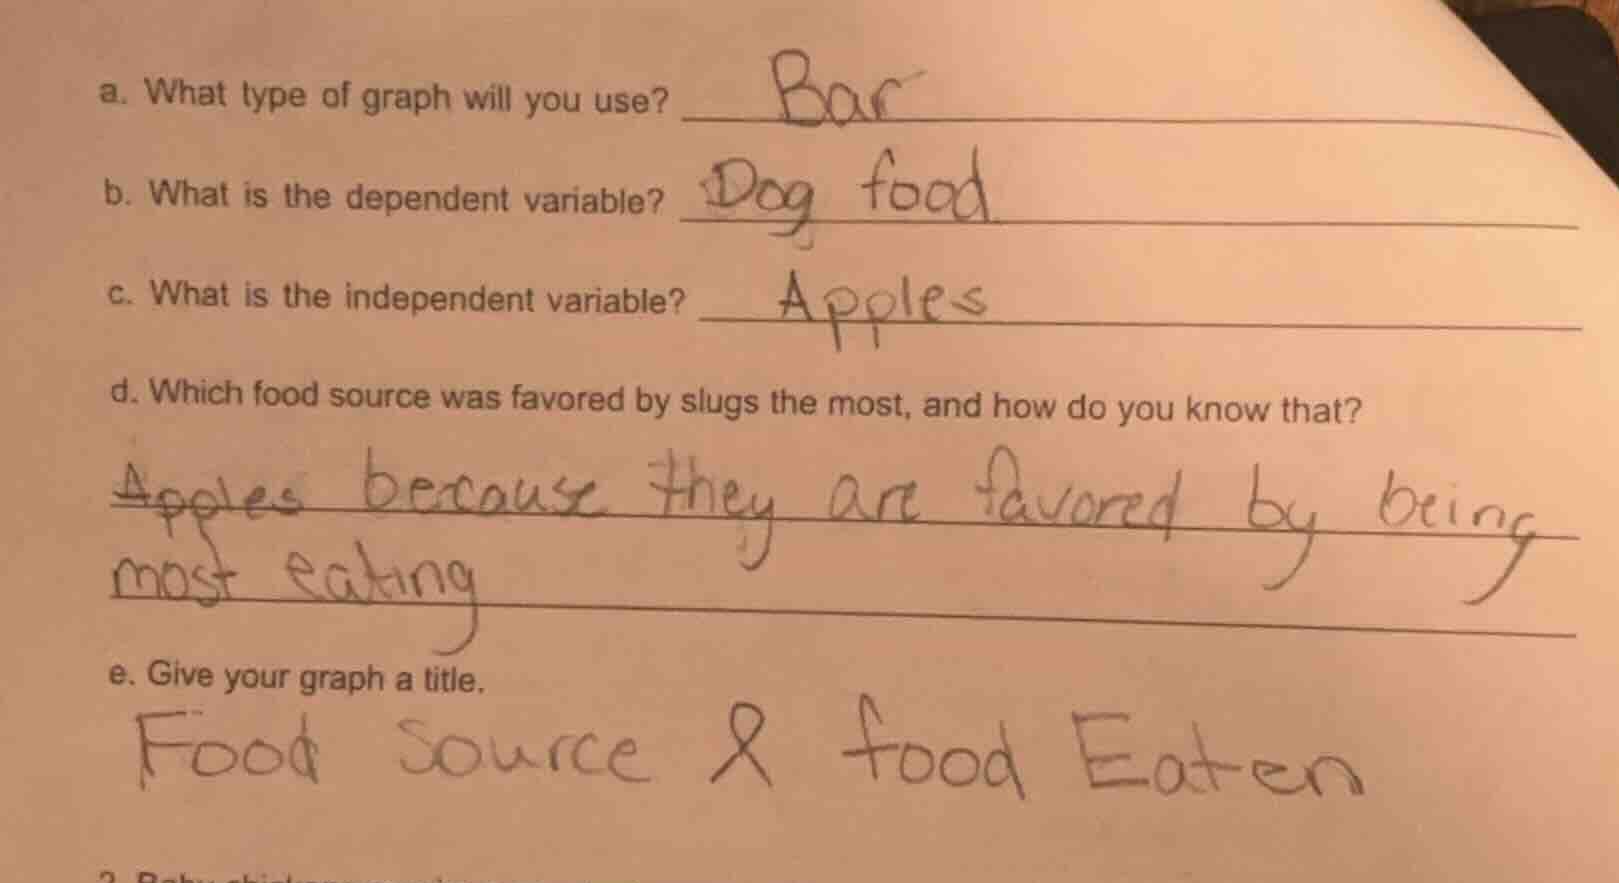 a. What type of graph will you use? Bar
b. What is the dependent variable? Dog food
c. What is the independent variable? Apples
d. Which food source was favored by slugs the most, and how do you know that?
Apples because they are favored by being
most eating
e. Give your graph a title.
Food Source & food Eaten